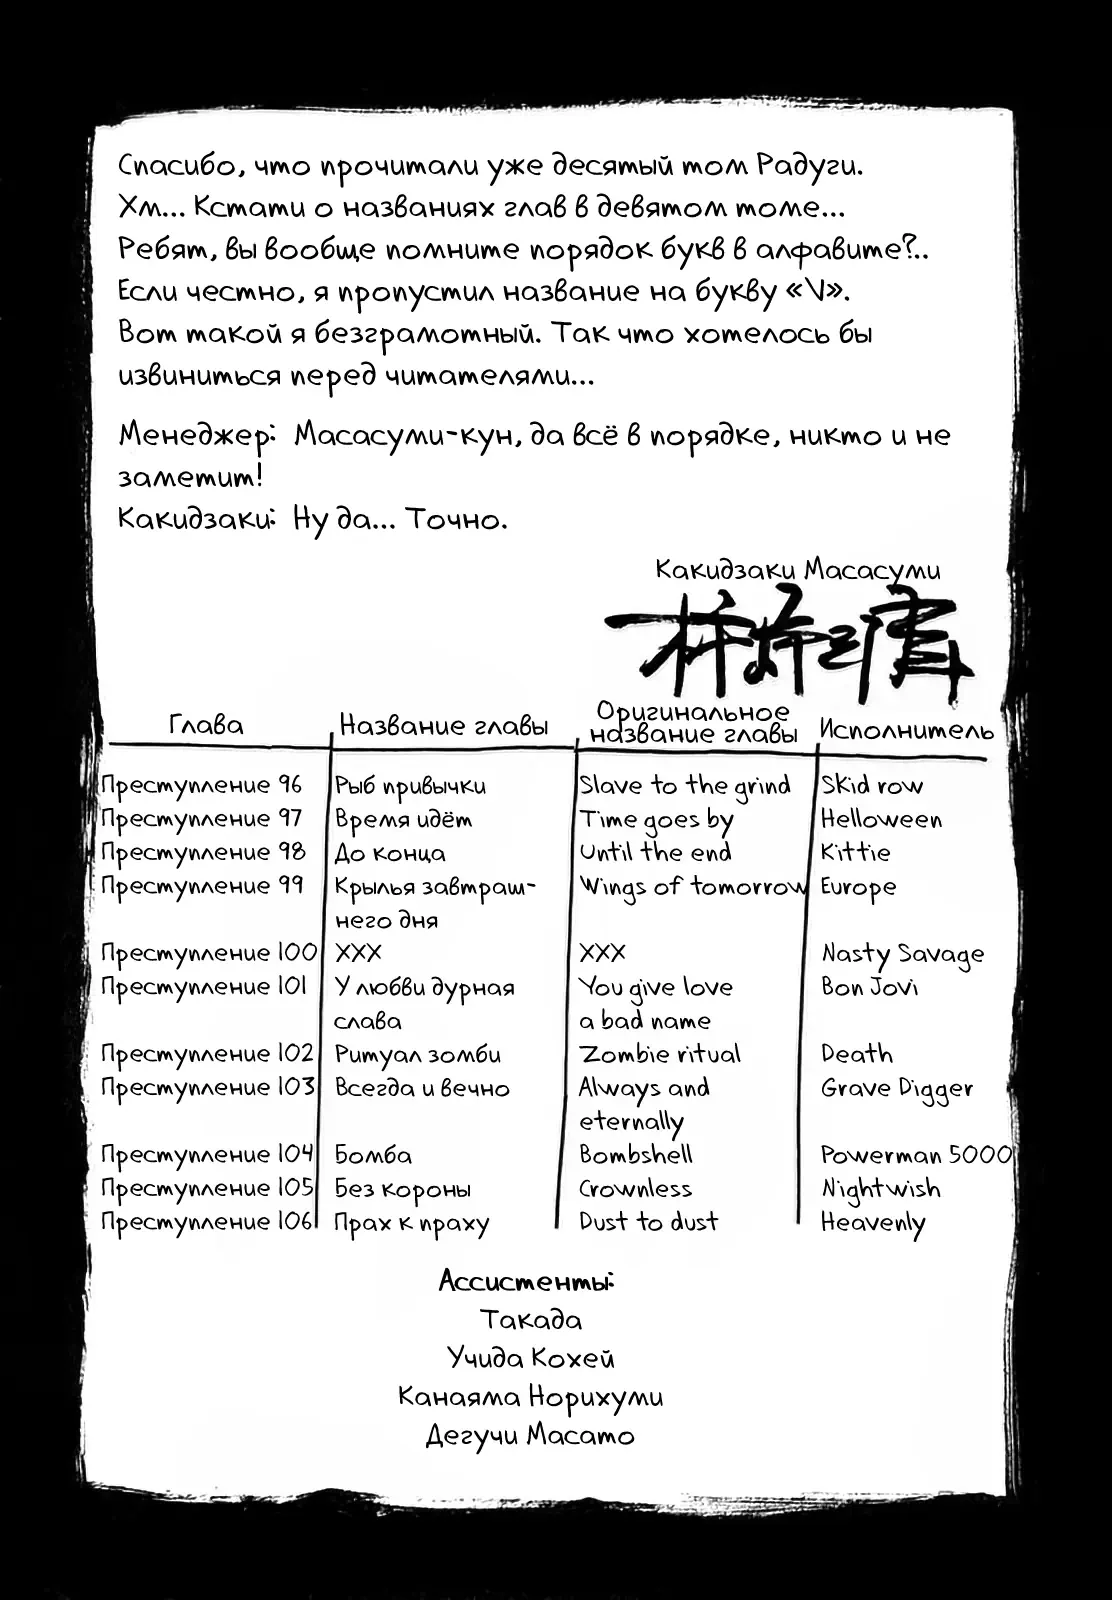 Спасибо, что прочитали уже десятый том Радуги.
Хм... Кстати о названиях глав в девятом томе...
Ребят, вы вообще помните порядок букв в алфавите?..
Если честно, я пропустил название на букву «V».
Вот такой я безграмотный. Так что хотелось бы
извиниться перед читателями...
Менеджер: Масасуми-кун, да всё в порядке, никто и не
заметит!
Какидзаки: Ну да... Точно.
Какидзаки Масасуми
柿崎正澄
Глава Название главы Оригинальное название главы Исполнитель
Преступление 96 Рыб привычки Slave to the grind Skid row
Преступление 97 Время идёт Time goes by Helloween
Преступление 98 До конца Until the end Kittie
Преступление 99 Крылья завтраш- Wings of tomorrow Europe
него дня
Преступление 100 XXX XXX Nasty Savage
Преступление 101 У любви дурная You give love Bon Jovi
слава a bad name
Преступление 102 Ритуал зомби Zombie ritual Death
Преступление 103 Всегда и вечно Always and Grave Digger
eternally
Преступление 104 Бомба Bombshell Powerman 5000
Преступление 105 Без короны Crownless Nightwish
Преступление 106 Прах к праху Dust to dust Heavenly
Ассистенты:
Такада
Учида Кохей
Канаяма Норихуми
Дегучи Масато